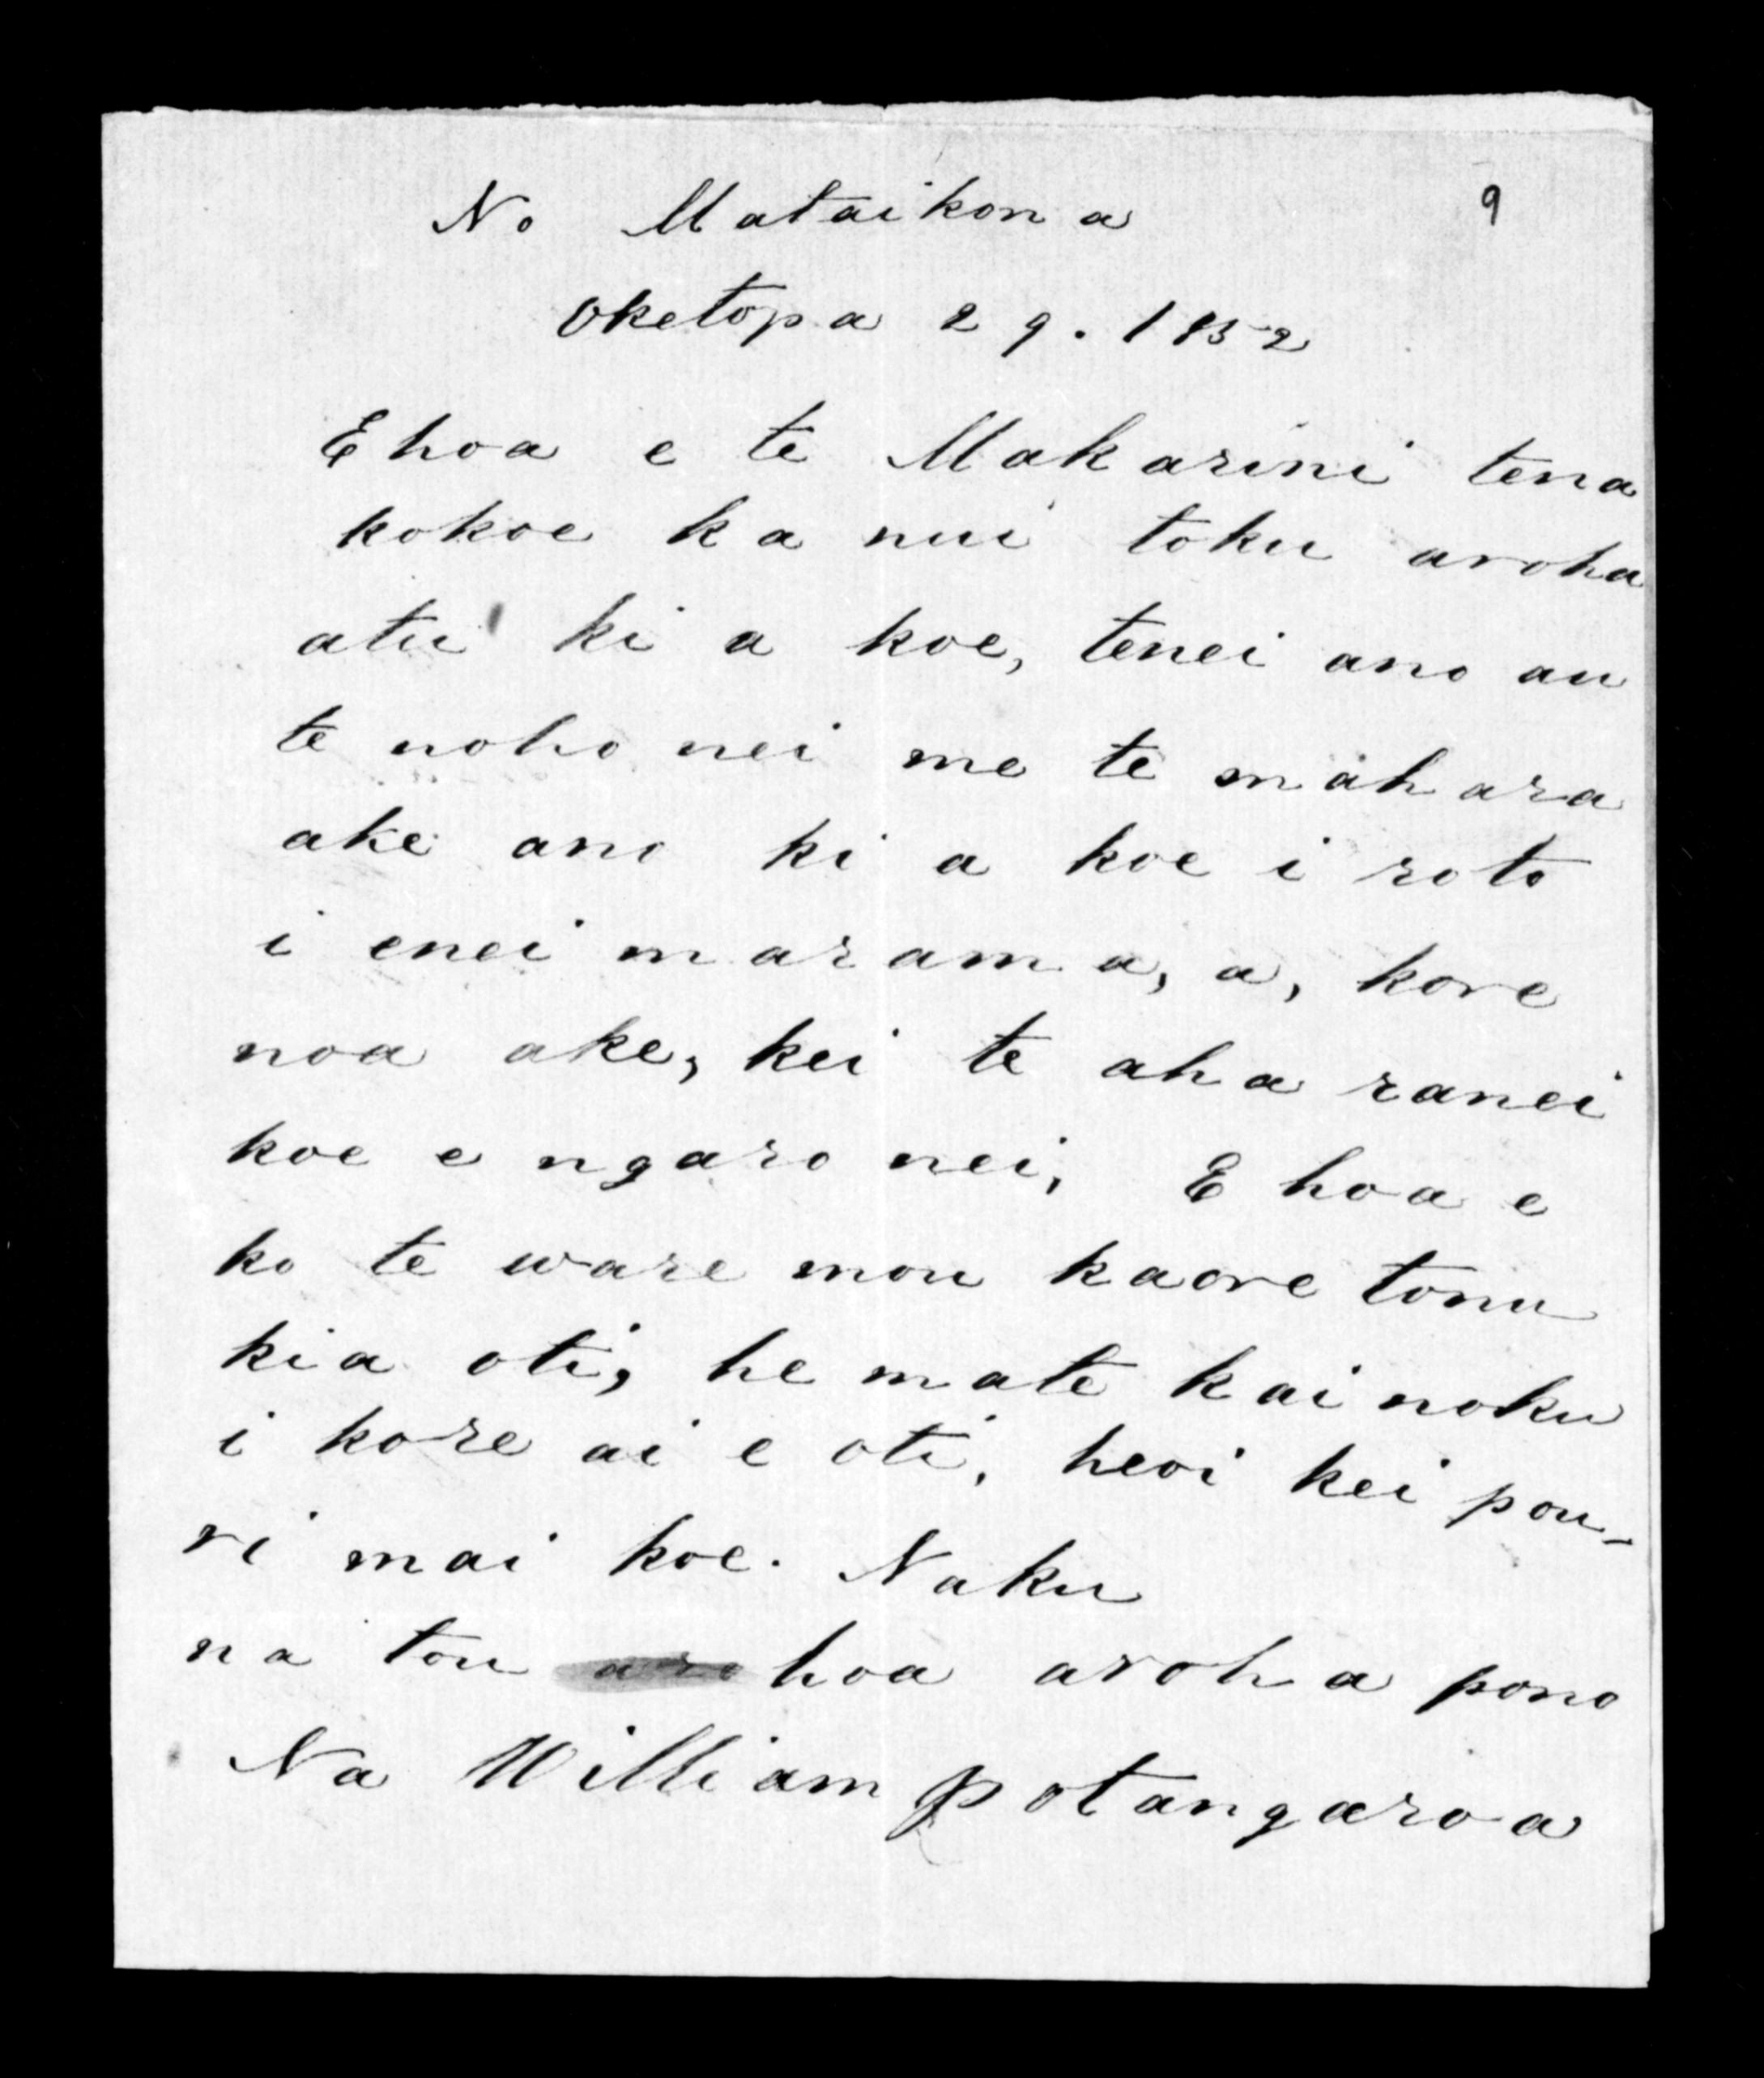 No Mataikona 9
Oketopa 29. 1852
E hoa e te Makarini tena
kokoe ka nui toku aroha
atu ki a koe, tenei ano au
te noho nei me te mahara
ake ano ki a koe i roto
i enei marama, a, kore
noa ake, kei te aha ranei
koe e ngaro nei, E hoa e
ko te ware mou kaore tonu
kia oti, he mate kai noku
i kore ai e oti, heoi kei pou-
ri mai koe. Naku
na tou aro hoa aroha pono
Na William Potangaroa